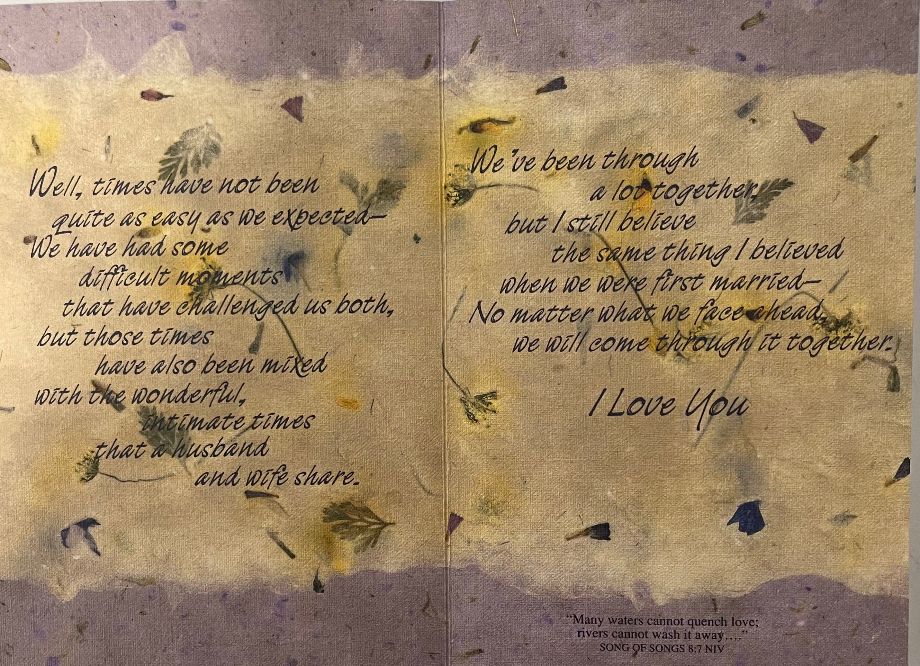 Well, times have not been
quite as easy as we expected—
We have had some
difficult moments
that have challenged us both,
but those times
have also been mixed
with the wonderful,
intimate times
that a husband
and wife share.
We've been through
a lot together,
but I still believe
the same thing I believed
when we were first married—
No matter what we face ahead,
we will come through it together.
I Love You
"Many waters cannot quench love;
rivers cannot wash it away...."
SONG OF SONGS 8:7 NIV